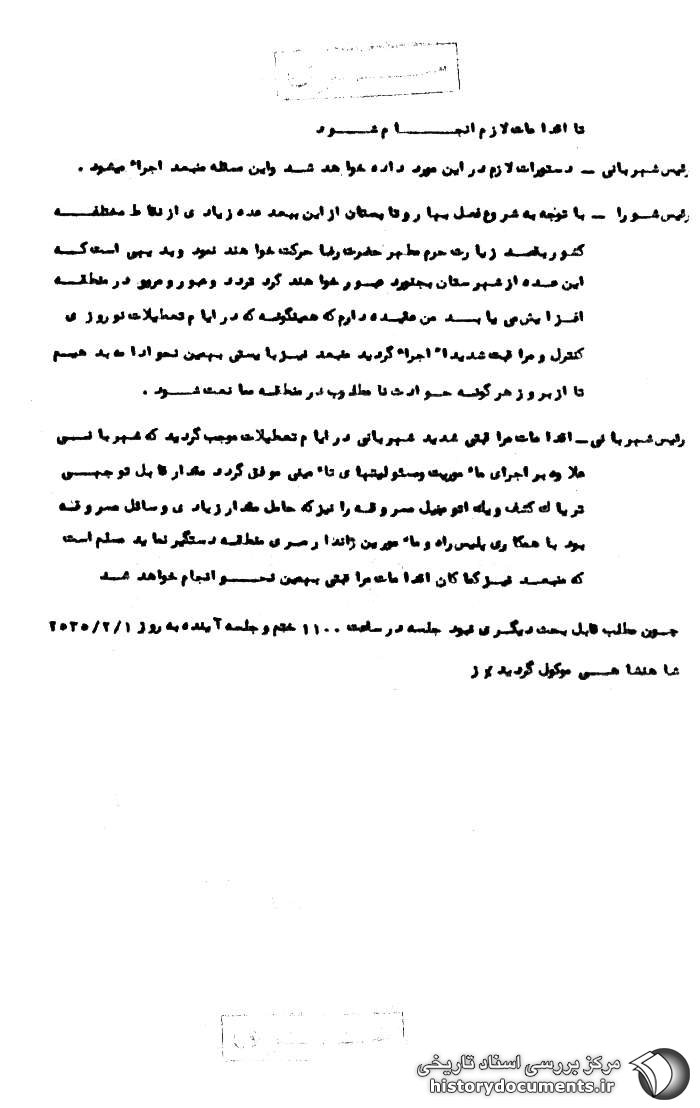 تا اقدامات لازم انجام شود
رئیس شهربانی – دستورات لازم در این مورد داده خواهد شد واین مسئله منبعد اجراء میشود .
رئیس شورا – با توجه به شروع فصل بهار و تابستان از این ببعد عده زیادی از نقاط مختلفه
کشور بقصد زیارت حرم مطهر حضرت رضا حرکت خواهند نمود وبدیهی است که
این عده از شهرستان بجنورد عبور خواهند کرد تردد وعبور و مرور در منطقه
افزایش می یابد من عقیده دارم که همینگونه که در ایام تعطیلات نوروزی
کنترل و مراقبت شدیدا" اجراء گردید منبعد نیز بایستی بهمین نحو ادامه بدهیم
تا از بروز هرگونه حوادث نامطلوب در منطقه ممانعت شود .
رئیس شهربانی – اقدامات مراقبتی شدید شهربانی در ایام تعطیلات موجب گردید که شهربانی
علاوه بر اجرای ماءموریت ومسئولیتهای تاءمینی موفق گردد مقدار قابل توجهی
تریاک کشف ویک اتومبیل مسروقه را نیز که حامل مقدار زیادی وسائل مسروقه
بود با همکاری پلیس راه و ماءمورین ژاندارمری منطقه دستگیر نماید مسلم است
که منبعد نیز کماکان اقدامات مراقبتی بهمین نحو انجام خواهد شد
چون مطلب قابل بحث دیگری نبود جلسه در ساعت ۱۱۰۰ ختم و جلسه آینده به روز ۲۵۳۵/۲/۱
شاهنشاهی موکول گردید ٪ ز
مرکز بررسی اسناد تاریخی
historydocuments.ir